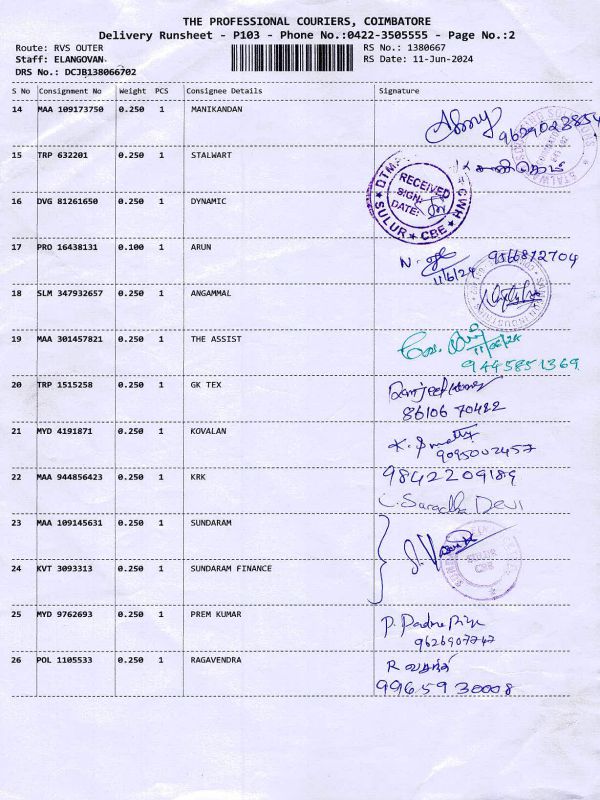 THE PROFESSIONAL COURIERS, COIMBATORE
Delivery Runsheet - P103 - Phone No.:0422-3505555 - Page No.:2
Route: RVS OUTER RS No.: 1380667
Staff: ELANGOVAN RS Date: 11-Jun-2024
DRS No.: DCJB138066702
S No Consignment No Weight PCS Consignee Details Signature
14 MAA 109173750 0.250 1 MANIKANDAN
9629023854
15 TRP 632201 0.250 1 STALWART
RECEIVED
SIGN:
DATE:
SULUR CBE
16 DVG 81261650 0.250 1 DYNAMIC
17 PRO 16438131 0.100 1 ARUN
11/6/24 9566872704
18 SLM 347932657 0.250 1 ANGAMMAL
19 MAA 301457821 0.250 1 THE ASSIST
11/06/24
9445851369
20 TRP 1515258 0.250 1 GK TEX
86106 70422
21 MYD 4191871 0.250 1 KOVALAN
9095002457
22 MAA 944856423 0.250 1 KRK
9842209189
Saradha Devi
23 MAA 109145631 0.250 1 SUNDARAM
SULUR
CBE
24 KVT 3093313 0.250 1 SUNDARAM FINANCE
25 MYD 9762693 0.250 1 PREM KUMAR
P. Padma
9626907747
26 POL 1105533 0.250 1 RAGAVENDRA
R
9965930008